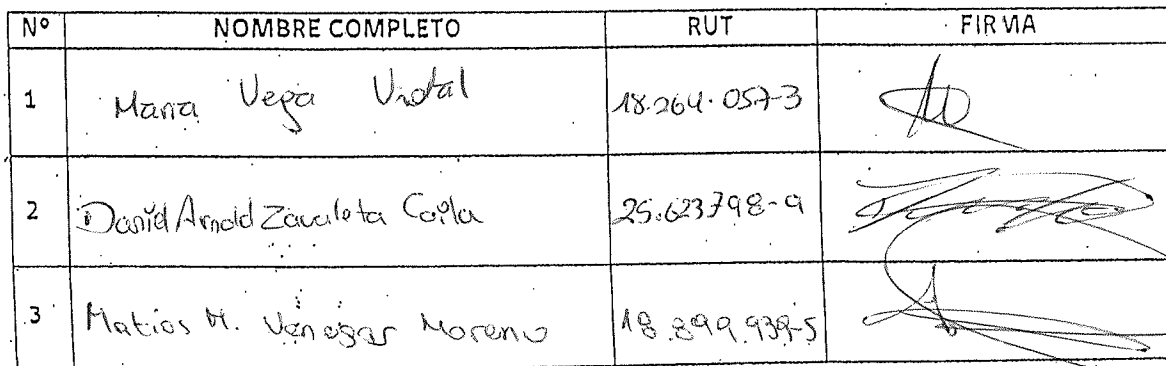 Nº NOMBRE COMPLETO RUT FIRMA
1 Maria Vega Vidal 18.264.057-3
2 David Arnold Zavaleta Coila 25.623798-9
3 Matias M. Venegas Moreno 18.899.939-5